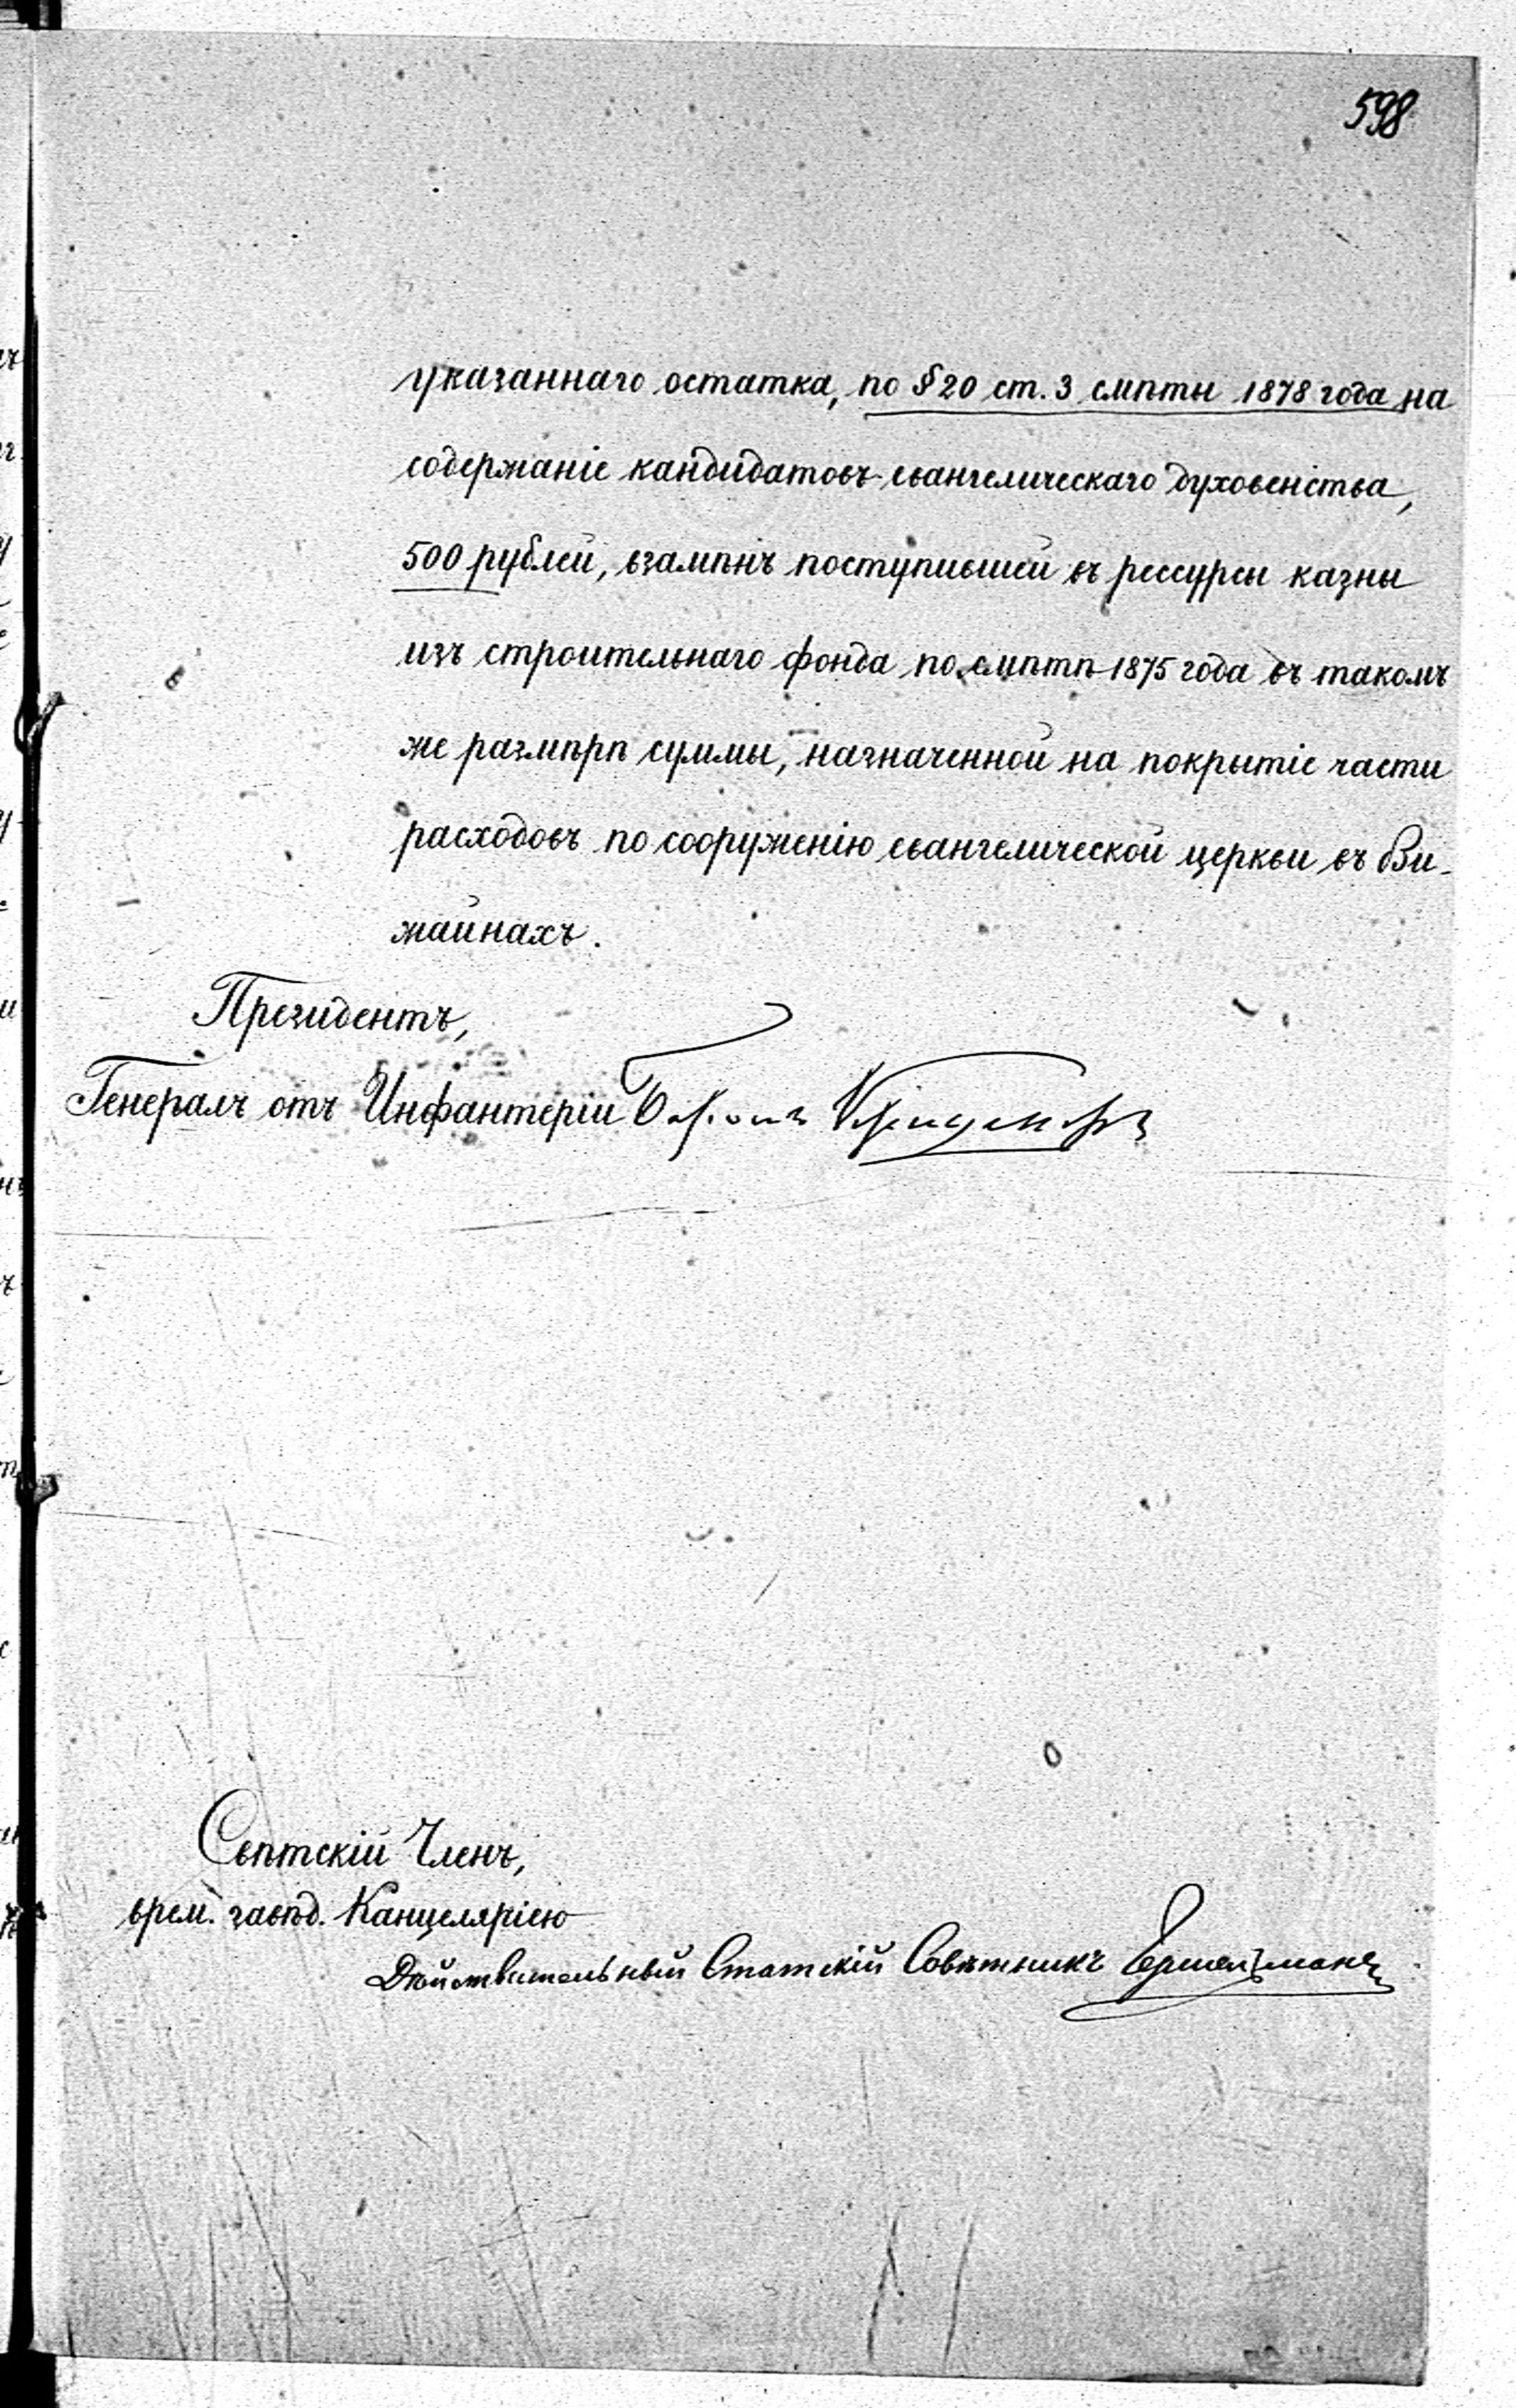 598
указаннаго остатка, по § 20 ст. 3 смѣты 1878 года на
содержаніе кандидатовъ евангелическаго духовенства,
500 рублей, взамѣнъ поступившей въ рессурсы казны
изъ строительнаго фонда по смѣтѣ 1875 года въ такомъ
же размѣрѣ суммы, назначенной на покрытіе части
расходовъ по сооруженію евангелической церкви въ Ви-
жайнахъ.
Президентъ,
Генералъ отъ Инфантеріи Баронъ Криденеръ
Свѣтскій Членъ,
врем. завѣд. Канцеляріею
Дѣйствительный Статскій Совѣтникъ